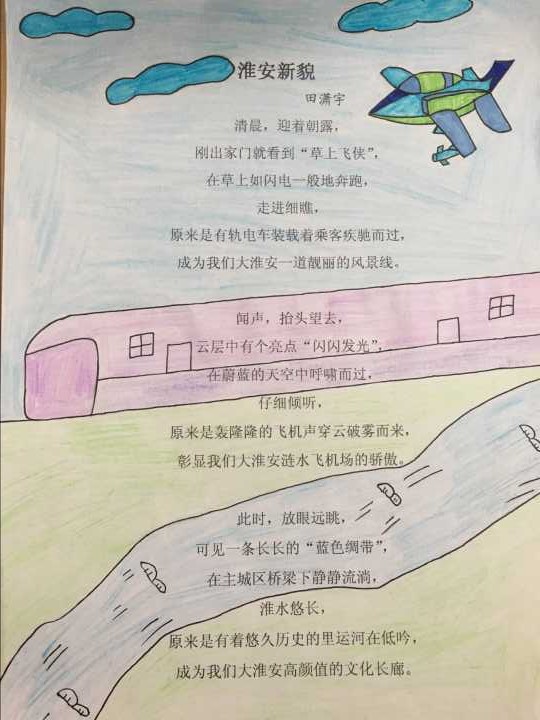 淮安新貌
田潇宇
清晨，迎着朝露，
刚出家门就看到“草上飞侠”，
在草上如闪电一般地奔跑，
走进细瞧，
原来是有轨电车装载着乘客疾驰而过，
成为我们大淮安一道靓丽的风景线。
闻声，抬头望去，
云层中有个亮点“闪闪发光”，
在蔚蓝的天空中呼啸而过，
仔细倾听，
原来是轰隆隆的飞机声穿云破雾而来，
彰显我们大淮安涟水飞机场的骄傲。
此时，放眼远眺，
可见一条长长的“蓝色绸带”，
在主城区桥梁下静静流淌，
淮水悠长，
原来是有着悠久历史的里运河在低吟，
成为我们大淮安高颜值的文化长廊。